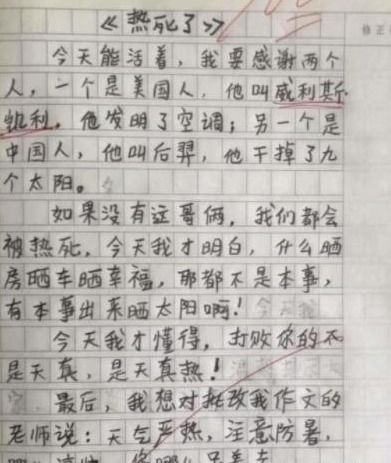 《热死了》
今天能活着，我要感谢两个
人，一个是美国人，他叫威利斯
凯利，他发明了空调；另一个是
中国人，他叫后羿，他干掉了九
个太阳。
如果没有这哥俩，我们都会
被热死，今天我才明白，什么晒
房晒车晒幸福，那都不是本事，
有本事出来晒太阳啊！
今天我才懂得，打败你的不
是天真，是天真热！
最后，我想对批改我作文的
老师说：天气炎热，注意防暑，